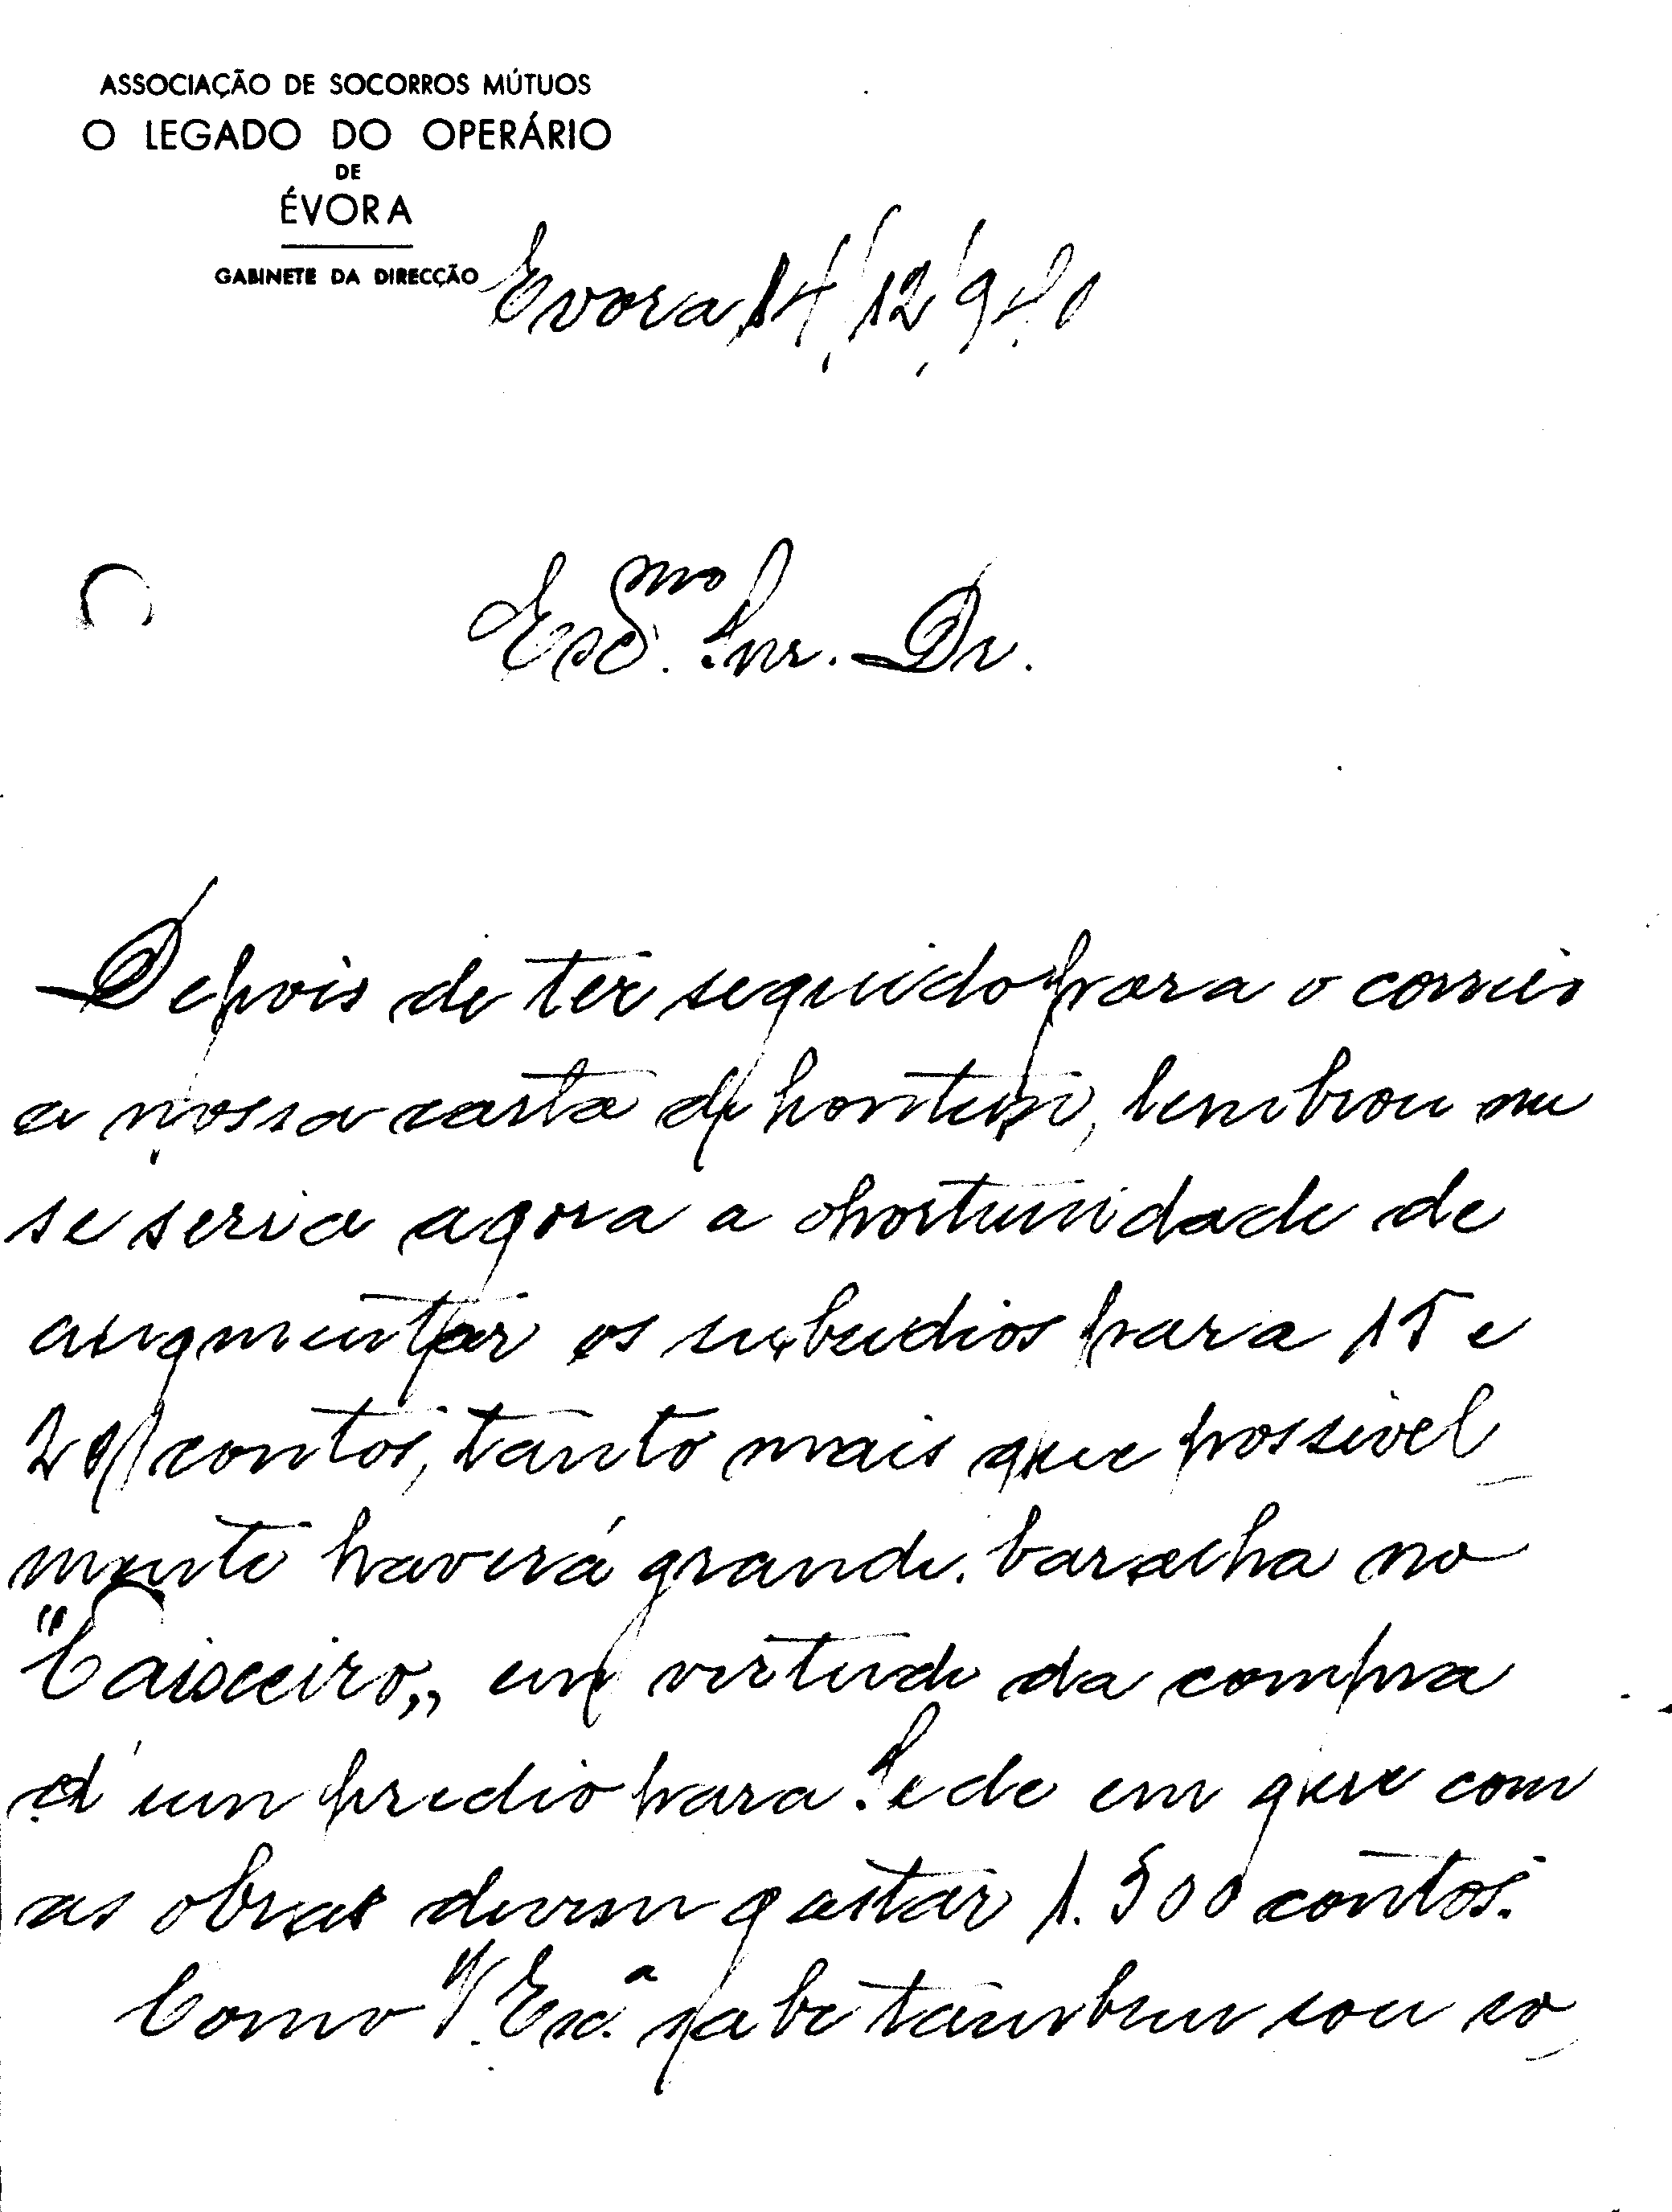 ASSOCIAÇÃO DE SOCORROS MÚTUOS
O LEGADO DO OPERÁRIO
DE
ÉVORA
GABINETE DA DIRECÇÃO
Evora 14/12/940
Exc.mo Snr. Dr.
Depois de ter seguido para o correio
a nossa carta de hontem, lembrou me
se seria agora a oportunidade de
augmentar os subsidios para 15 e
20 contos, tanto mais que possivel_
mente haverá grande baralha no
"Caixeiro,, em virtude da compra
d'um predio para Séde em que com
as obras devem gastar 1.500 contos.
Como V. Exc.ª sabe tambem sou so_